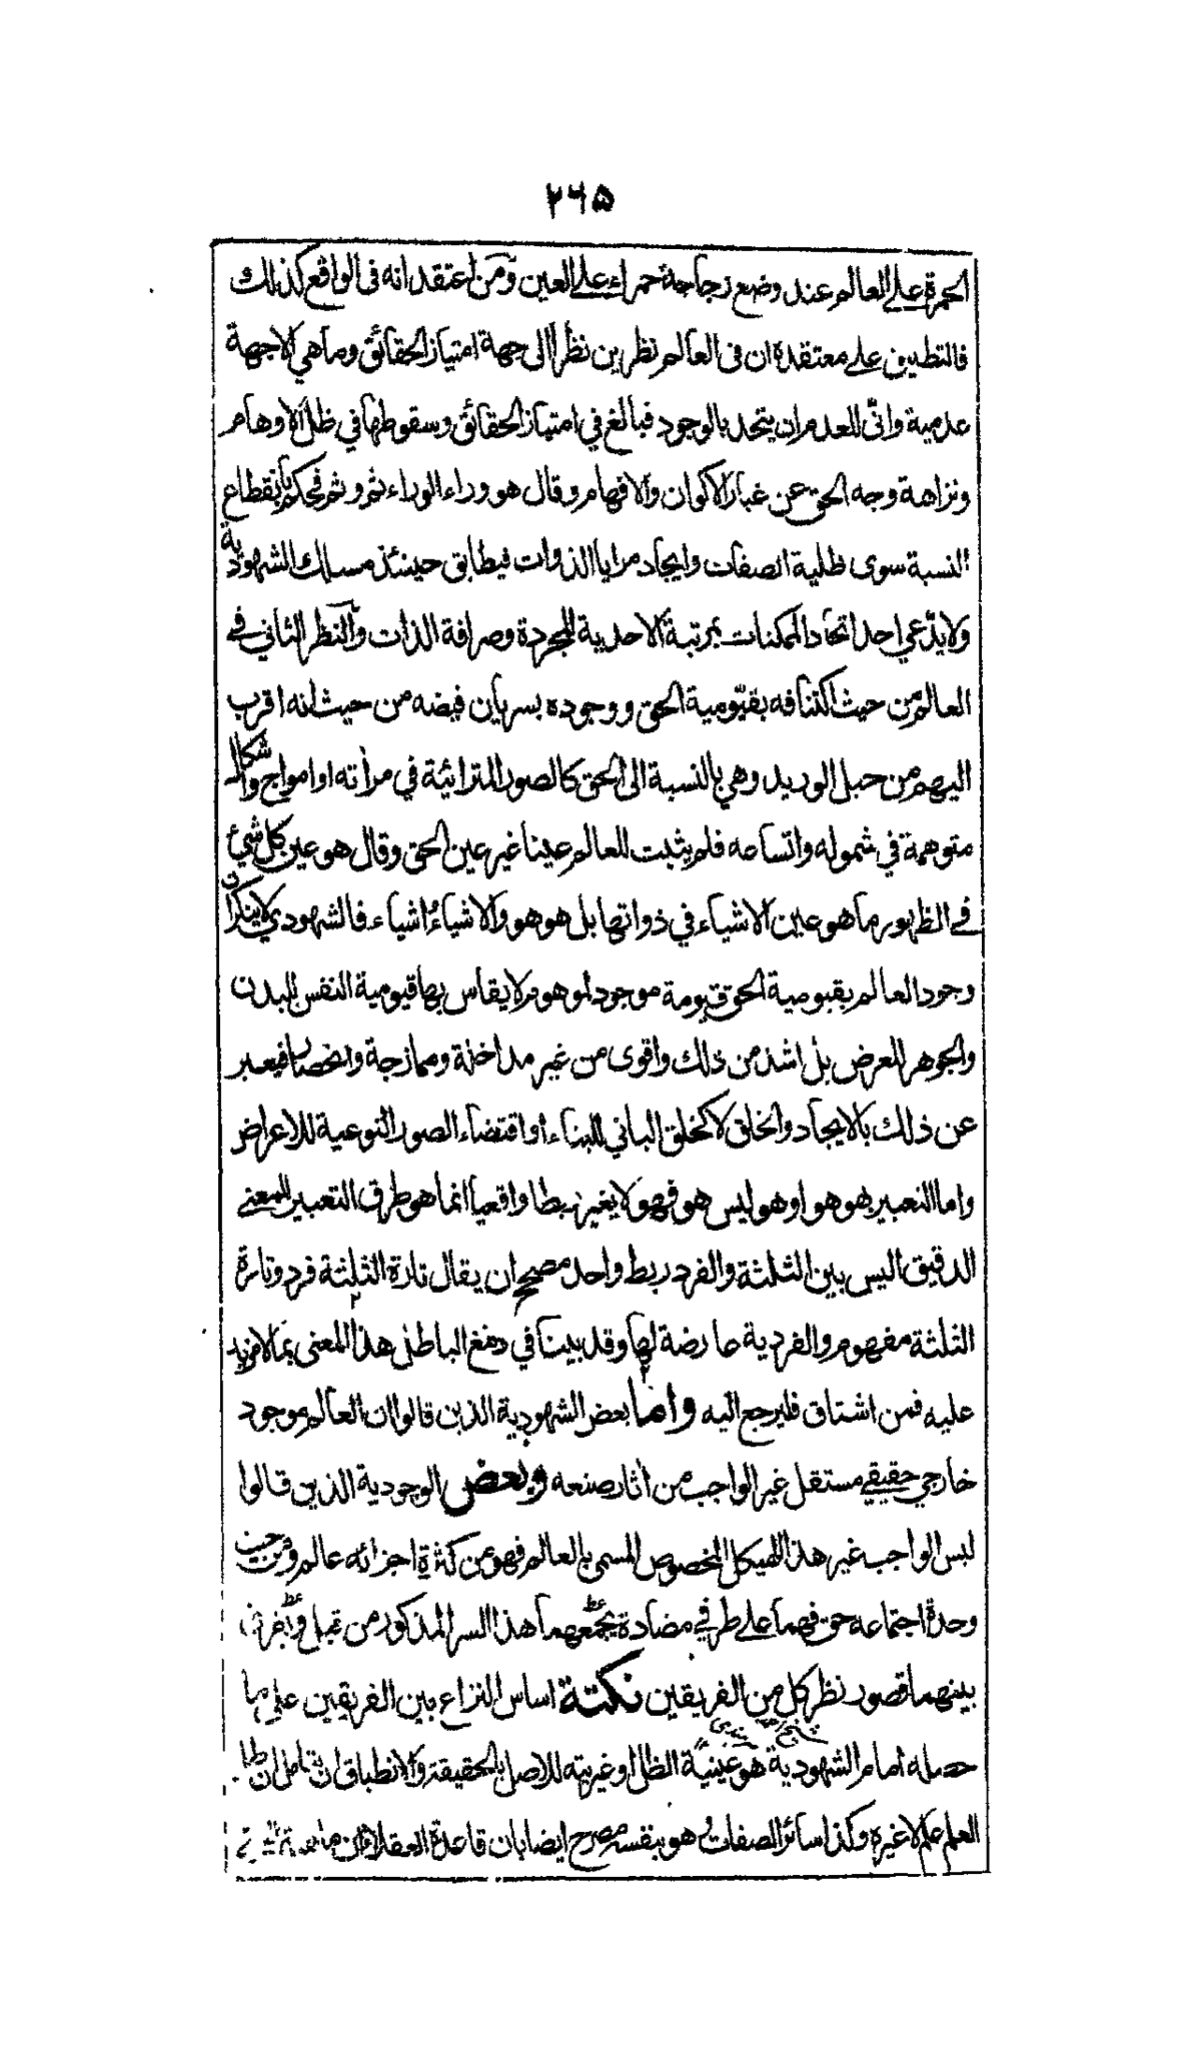 ۲۶۵
الحمرة على العالم عند وضع زجاجة حمراء على العين ومن اعتقد انه فى الواقع كذلك
فالتطبيق على معتقده ان فى العالم نظرين نظرا الى جهة امتياز الحقائق وما هي الا جهة
عدمية وانّى للعدم ان يتحد بالوجود فبالغ في امتياز الحقائق وسقوطها في ظل الاوهام
ونزاهة وجه الحق عن غبار الاكوان والافهام وقال هو وراء الوراء ثم وثم فحكم بانقطاع
النسبة سوى ظلية الصفات وايجاد مرايا الذوات فيطابق حينئذ مسلك الشهودية
ولا يدّعي احد اتحاد الممكنات بمرتبة الاحدية المجردة وصرافة الذات والنظر الثاني فے
العالم من حيث اكتنافه بقيّومية الحق ووجوده بسريان فيضه من حيث انه اقرب
اليهم من حبل الوريد وهي بالنسبة الى الحق كالصور المترائية في مرآته او امواج واشكال
متوهمة في شموله واتساعه فلم يثبت للعالم عينا غير عين الحق وقال هو عين كل شيء
فے الظهور ما هو عين الاشياء في ذواتها بل هو هو والاشياء اشياء فالشهودي لا ينكر ان
وجود العالم بقيومية الحق قيومة موجود لموهوم لا يقاس بها قيومية النفس للبدن
والجوهر للعرض بل اشد من ذلك واقوى من غير مداخلة وممازجة وانحصار فيعبر
عن ذلك بالايجاد والخلق لا كخلق الباني للبناء او اقتضاء الصور النوعية للاعراض
واما التعبير بهو هو او هو ليس هو فهو لا يغير ربطا واقعيا انما هو طرق التعبير للمعنے
الدقيق اليس بين الثلثة والفرد ربط واحد مصحح ان يقال تارة الثلثة فرد وتارة
الثلثة مفهوم والفردية عارضة لها وقد بينا في دمغ الباطل هذا المعنى بما لا مزيد
عليه فمن اشتاق فليرجع اليه واما بعض الشهودية الذين قالوا ان العالم موجود
خارجي حقيقے مستقل غير الواجب من اثار صنعه وبعض الوجودية الذين قالوا
ليس الواجب غير هذا الهيكل المخصوص المسمى بالعالم فهو من كثرة اجزائه عالم ومن حيث
وحدة اجتماعه حق فهما على طرفي مضادة يجمعهما هذا السر المذكور من قبل
بينهما قصور نظر كل من الفريقين نكتة اساس النزاع بين الفريقين على ما
حمله امام الشهودية هو عينية الظل او غيريته للاصل بالحقيقة والانطباق ان تامل ان ظل
العلم علم لا غيره وكذا سائر الصفات وهو بنفسه مصرح ايضا بان قاعدة العقلاء